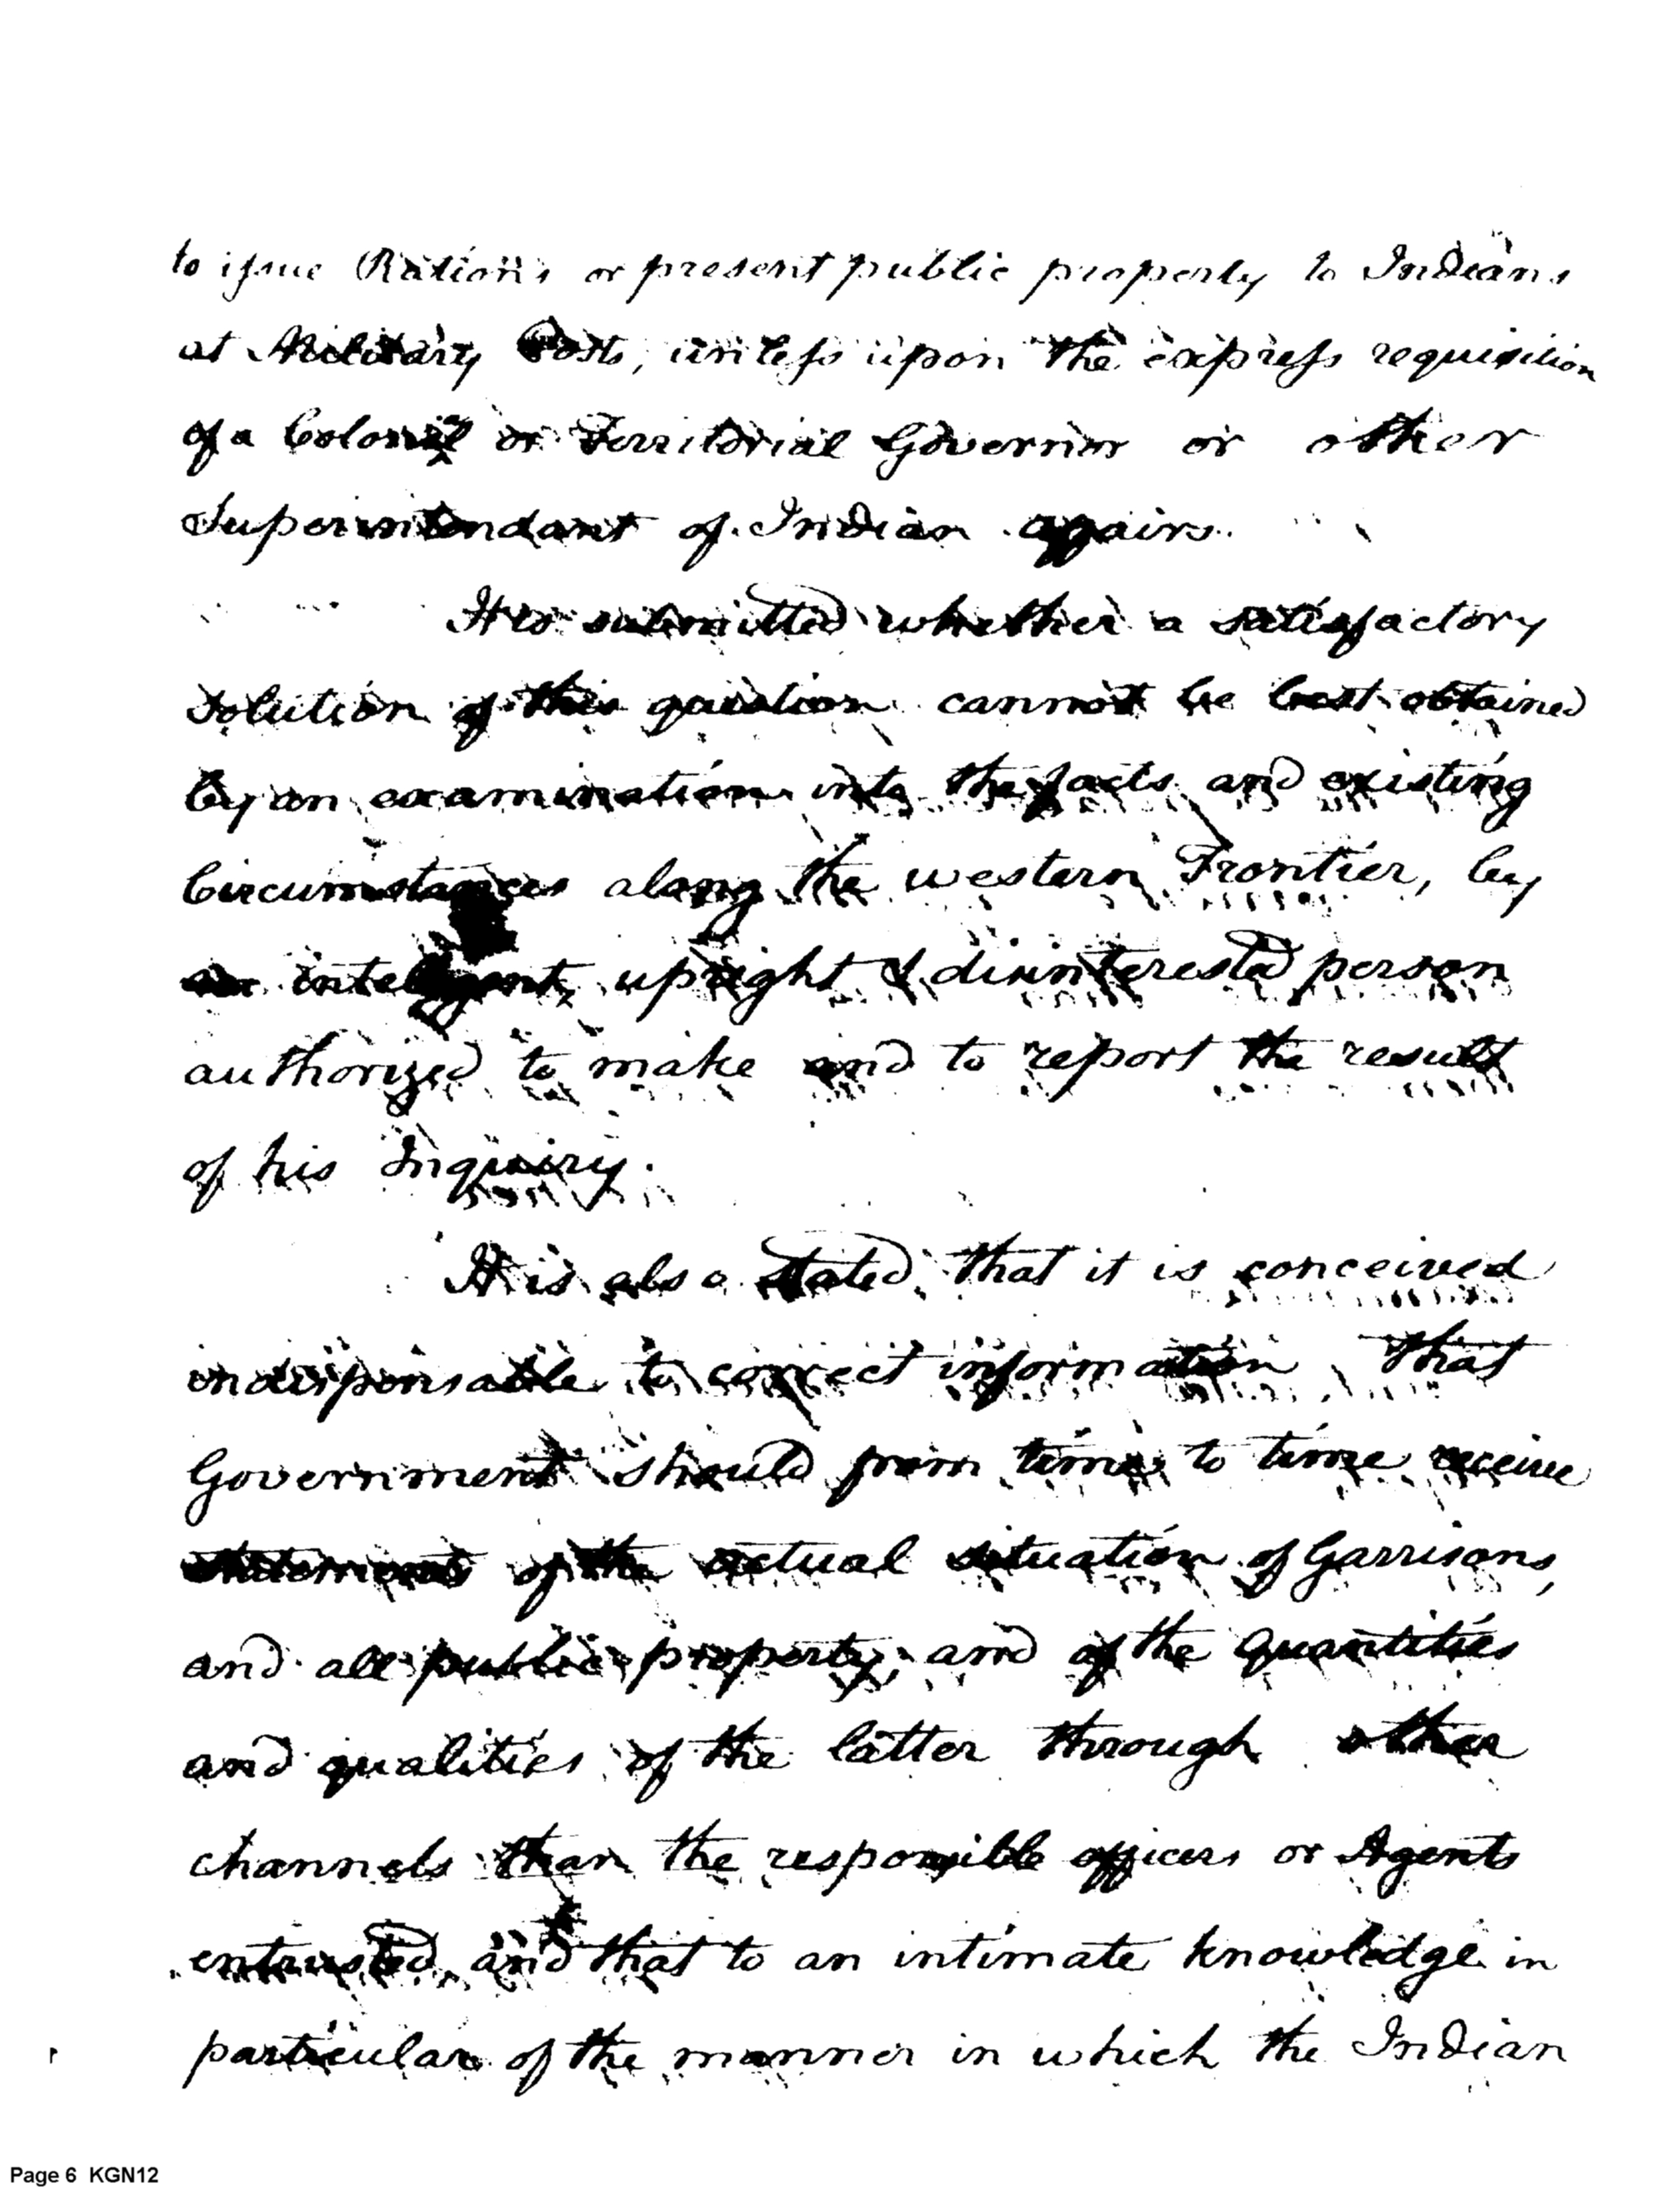 to issue Rations or present public property to Indians
at Military Posts, unless upon the express requisition
of a Colonel or Territorial Governor or other
Superintendant of Indian affairs.
It is submitted whether a satisfactory
solution of this question cannot be best obtained
by an examination into the facts and existing
Circumstances along the western Frontier, by
an intelligent, upright & disinterested person
authorized to make and to report the result
of his Inquiry.
It is also stated, that it is conceived
indispensable to correct information, that
Government should from time to time receive
statements of the actual situation of Garrisons,
and all public property, and of the quantities
and qualities of the latter through other
channels than the responsible officers or Agents
entrusted and that to an intimate knowledge in
particular of the manner in which the Indian
Page 6 KGN12